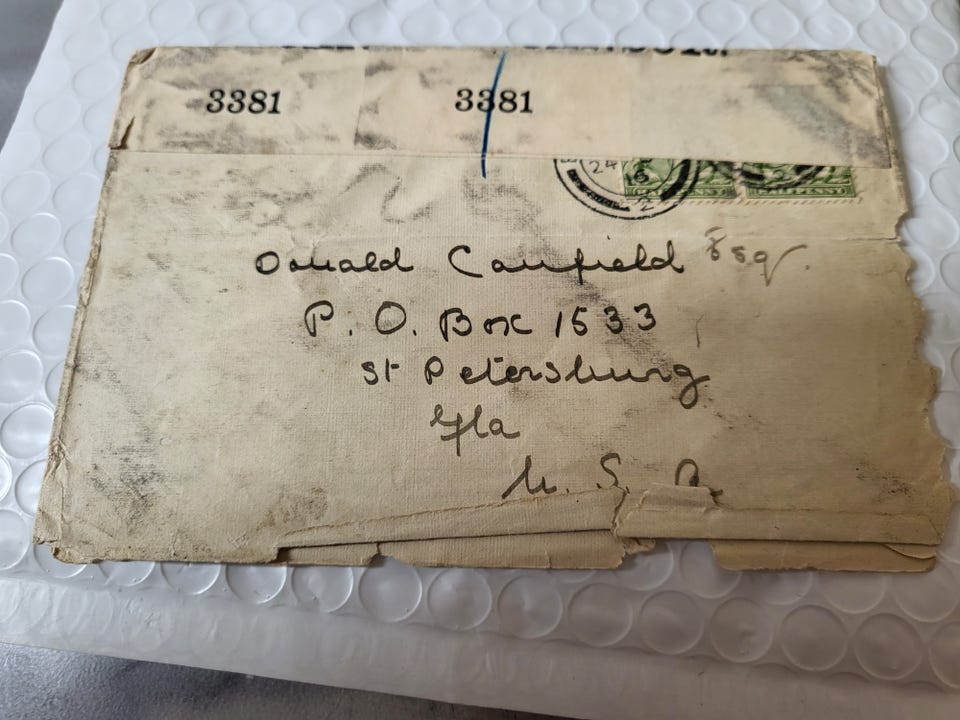 3381 3381
24
2
Donald Canfield Esq.
P. O. Box 1533
St Petersburg
Fla
U. S. A.